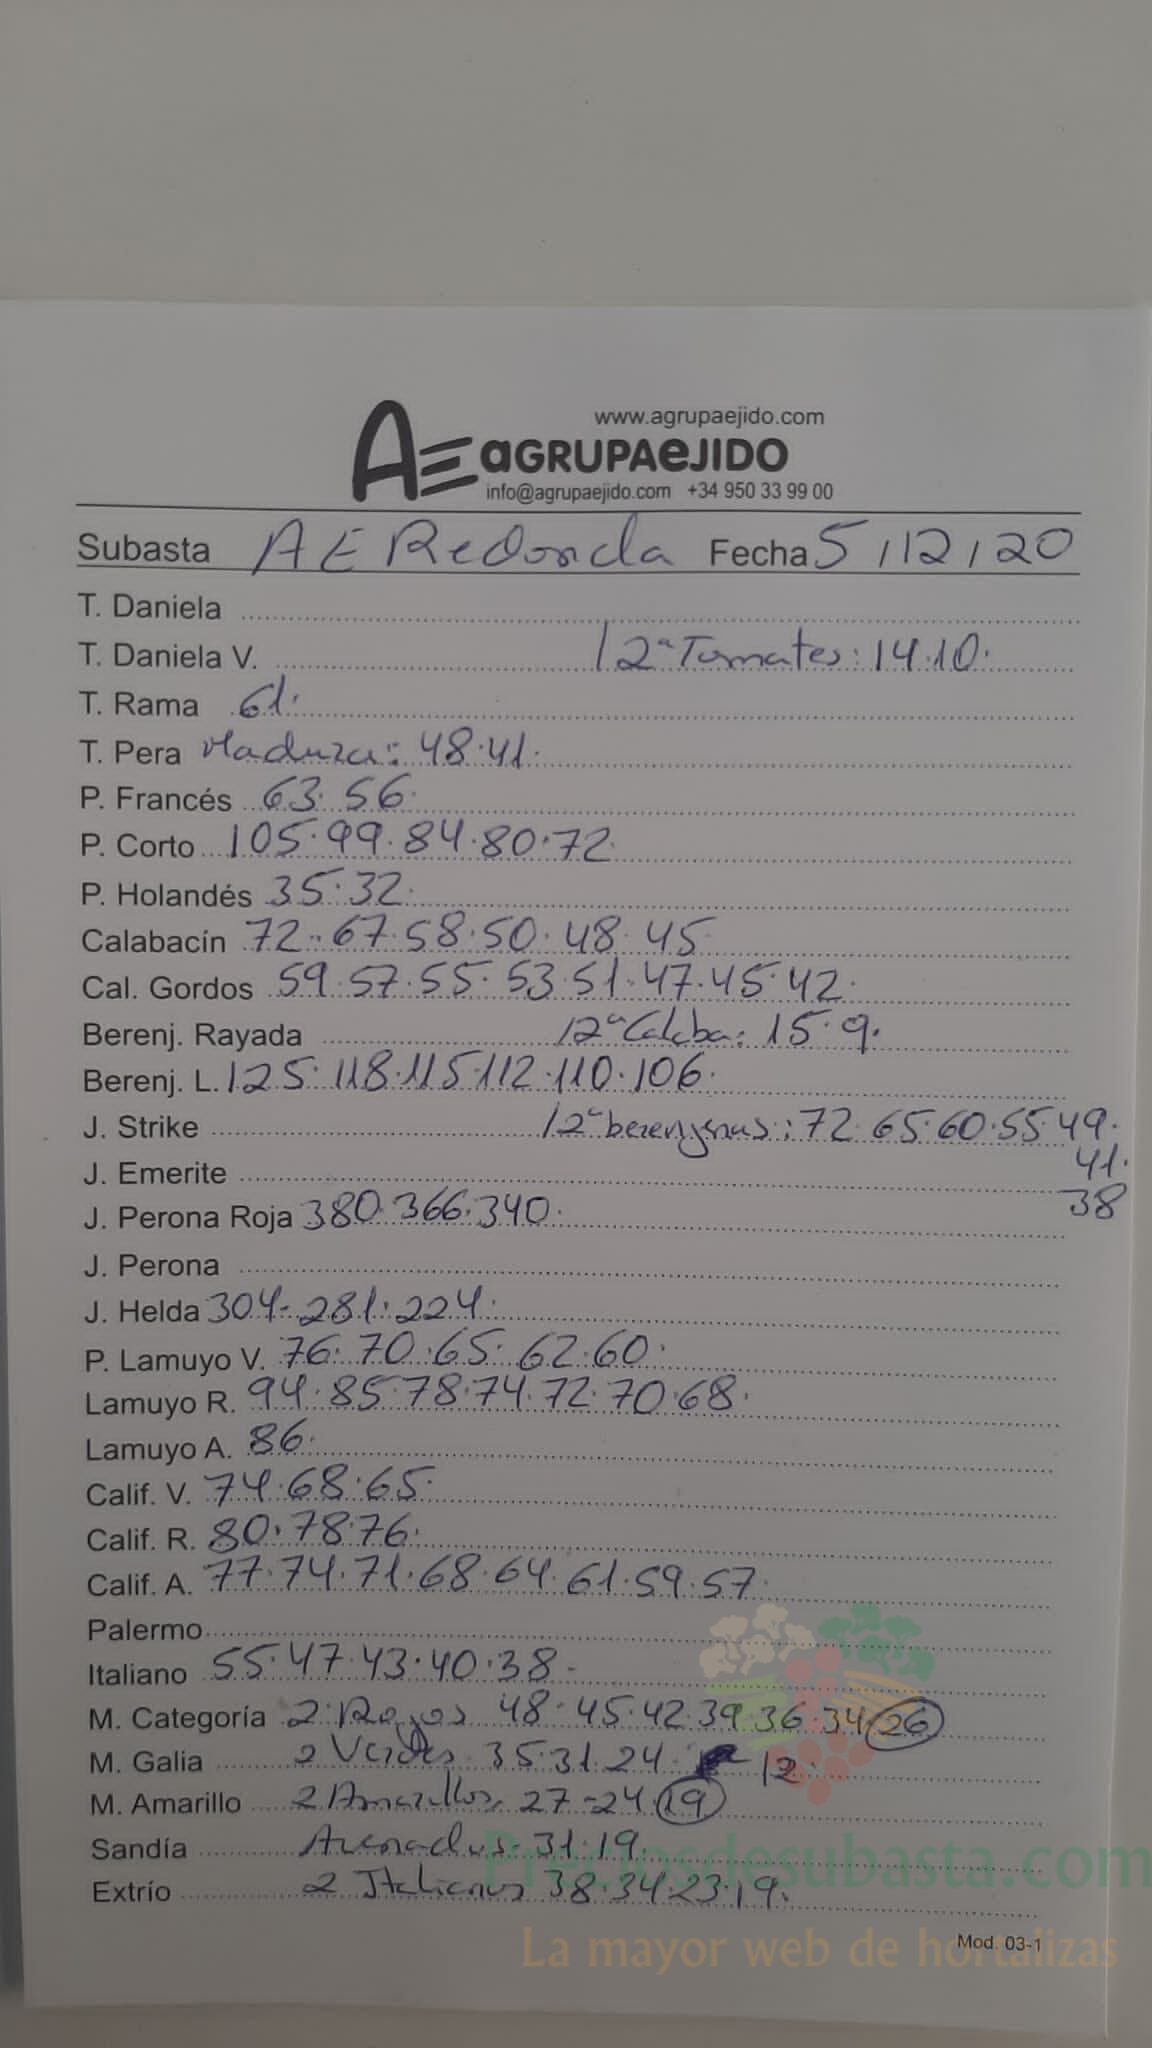 www.agrupaejido.com
AE aGRUPAeJIDO
info@agrupaejido.com +34 950 33 99 00
Subasta AE Redonda Fecha 5/12/20
T. Daniela
T. Daniela V. / 2ª Tomates: 14.10.
T. Rama 61.
T. Pera Madura: 48.41.
P. Francés 63.56.
P. Corto 105.99.84.80.72.
P. Holandés 35.32.
Calabacín 72.67.58.50.48.45.
Cal. Gordos 59.57.55.53.51.47.45.42.
Berenj. Rayada / 2ª Calaba: 15.9.
Berenj. L. 125.118.115.112.110.106.
J. Strike / 2ª berenjenas: 72.65.60.55.49.
J. Emerite 41.
38
J. Perona Roja 380.366.340.
J. Perona
J. Helda 304-281.224.
P. Lamuyo V. 76.70.65.62.60.
Lamuyo R. 94.85.78.74.72.70.68.
Lamuyo A. 86.
Calif. V. 74.68.65.
Calif. R. 80.78.76.
Calif. A. 77.74.71.68.64.61.59.57.
Palermo
Italiano 55.47.43.40.38-
M. Categoría 2 Rojos 48.45.42.39.36.34.26
M. Galia 2 Verdes 35.31.24. 12.
M. Amarillo 2 Amarillos. 27-24.19
Sandía Asurados-31.19.
Extrío 2 Italianos 38.34.23.19.
Preciosdesubasta.com
La mayor web de hortalizas
Mod. 03-1